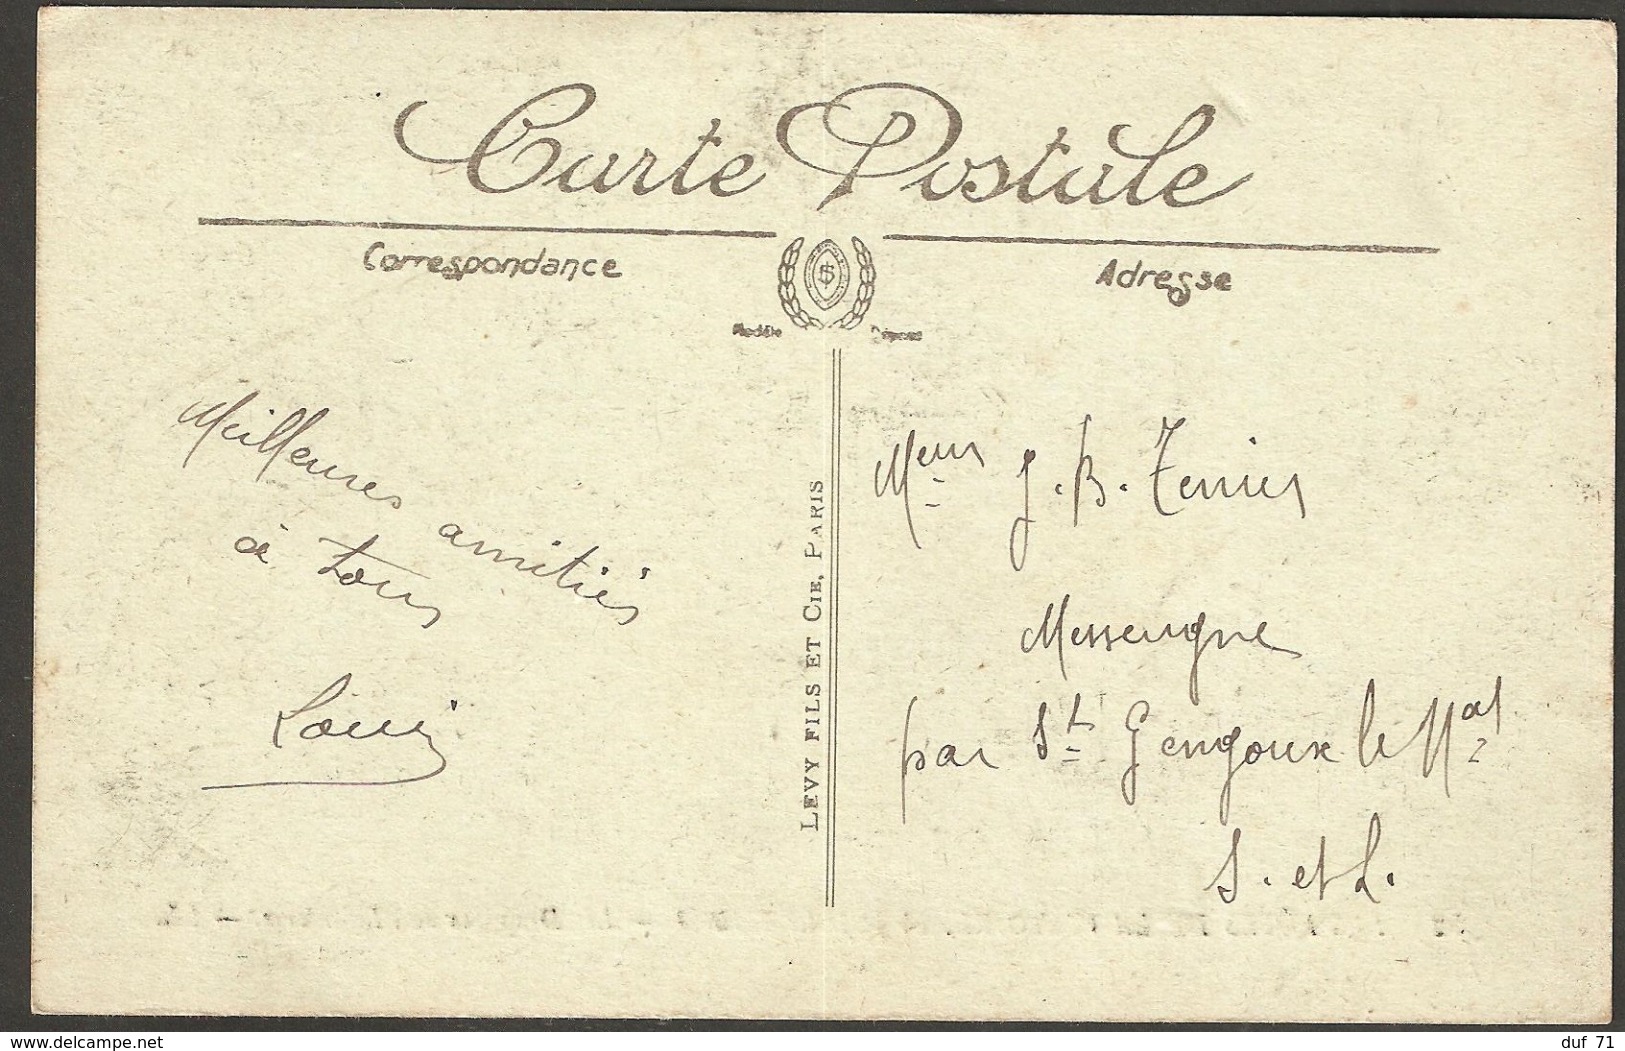 Carte Postale
Correspondance
Adresse
Modèle
Déposé
Meilleures amitiés
à tous
Louis
LEVY FILS ET CIE, PARIS
Meur J. B. Terrier
Messeugne
par St Gengoux le Nal
S. et L.
www.delcampe.net
duf_71